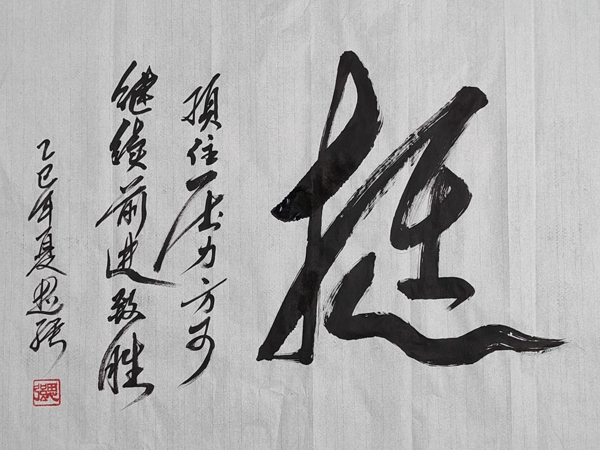 挺
顶住压力方可
继续前进致胜
乙巳年夏思强